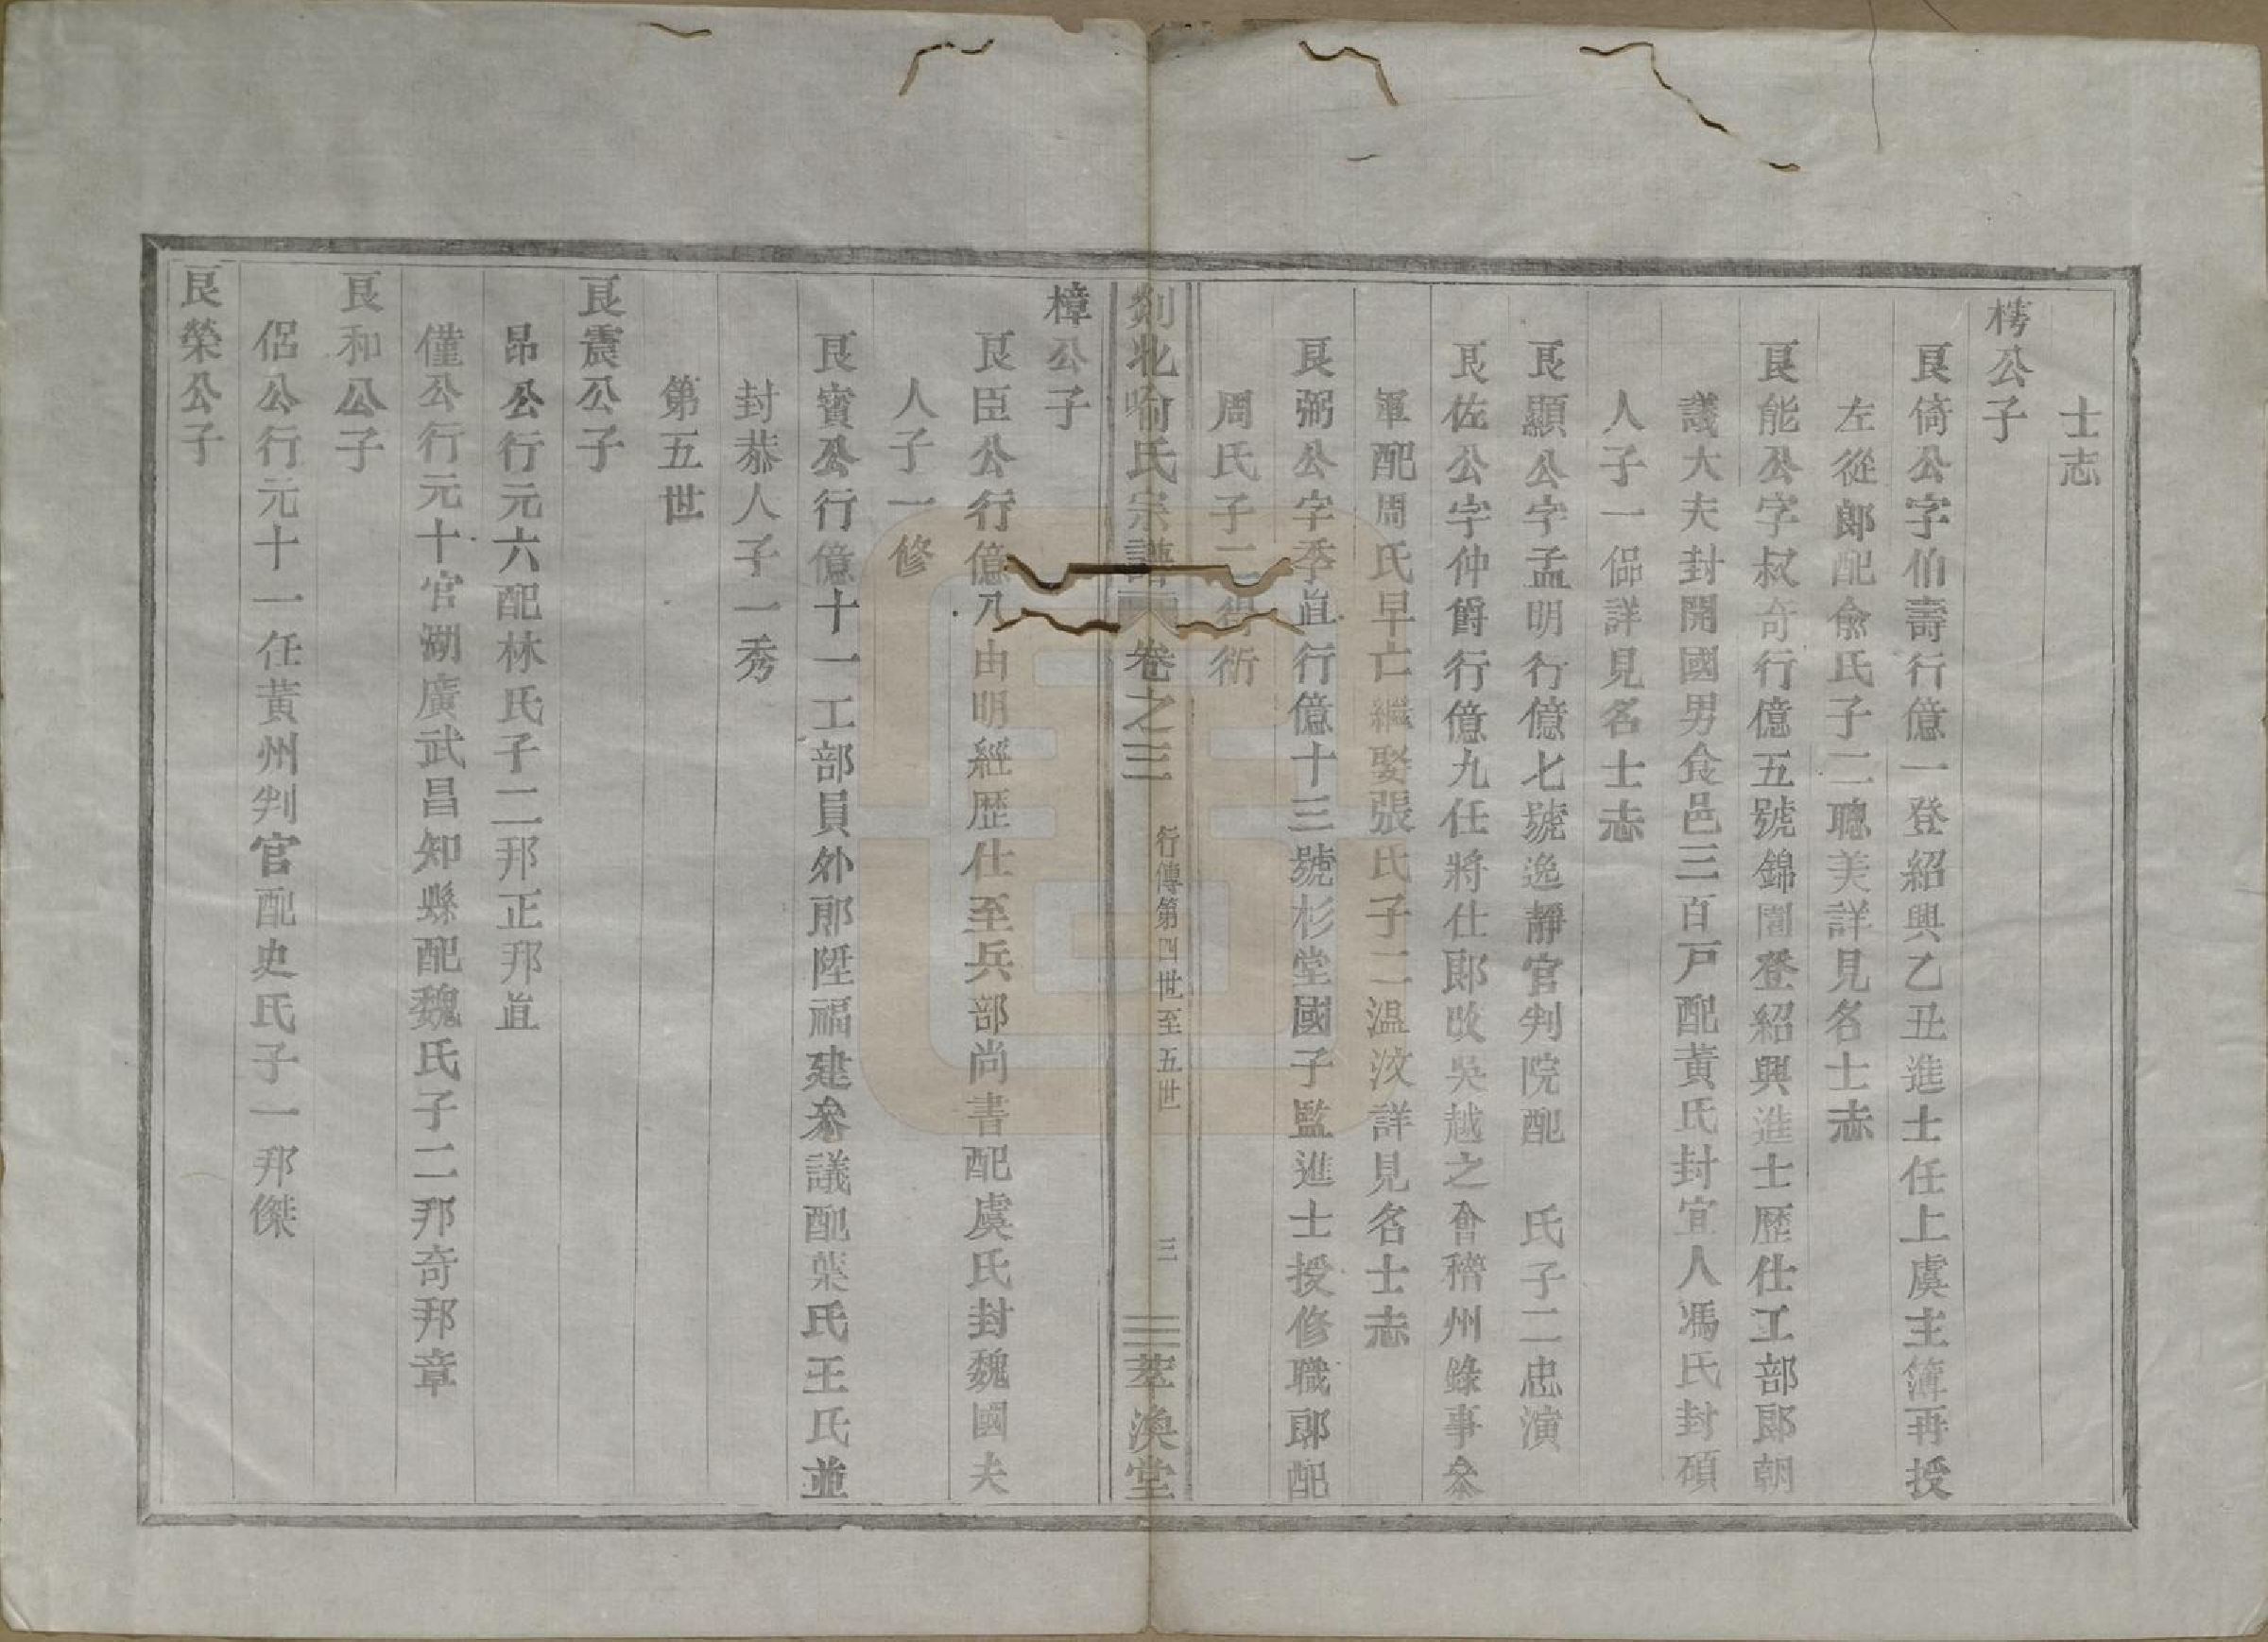 士志
樗公子
良倚公字伯壽行億一登紹興乙丑進士任上虞主簿再授
左從郎配俞氏子二聰美詳見名士志
良能公字叔奇行億五號錦園登紹興進士歷仕工部郎朝
議大夫封開國男食邑三百戸配黃氏封宜人馮氏封碩
人子一偘詳見名士志
良顯公字孟明行億七號逸靜官判院配　氏子二忠演
良佐公字仲爵行億九任將仕郎改吳越之會稽州錄事叅
軍配周氏早亡繼娶張氏子二温汶詳見名士志
良弼公字季直行億十三號杉堂國子監進士授修職郎配
周氏子二衎
剡北喻氏宗譜 卷之三 行傳第四世至五世 三 萃渙堂
樟公子
良臣公行億八由明經歷仕至兵部尚書配虞氏封魏國夫
人子一修
良賓公行億十一工部員外郎陞福建叅議配葉氏王氏並
封恭人子一秀
第五世
良震公子
昂公行元六配林氏子二邦正邦直
僅公行元十官湖廣武昌知縣配魏氏子二邦奇邦章
良和公子
侶公行元十一任黃州判官配史氏子一邦傑
良榮公子